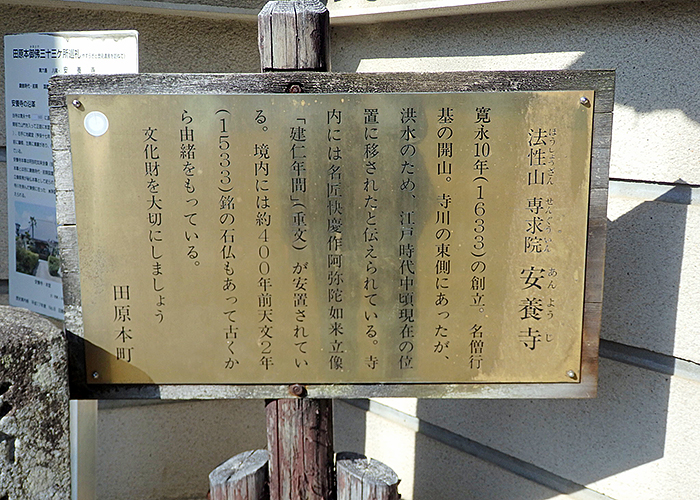 法性山 専求院 安養寺
ほうしょうさん せんぐういん あんようじ
寛永10年(1633)の創立。名僧行
基の開山。寺川の東側にあったが、
洪水のため、江戸時代中頃現在の位
置に移されたと伝えられている。寺
内には名匠快慶作阿弥陀如来立像
「建仁年間」(重文)が安置されてい
る。境内には約400年前天文2年
(1533)銘の石仏もあって古くか
ら由緒をもっている。
文化財を大切にしましょう
田原本町
田原本御佛三十三ケ所巡礼
安養寺
安養寺の沿革